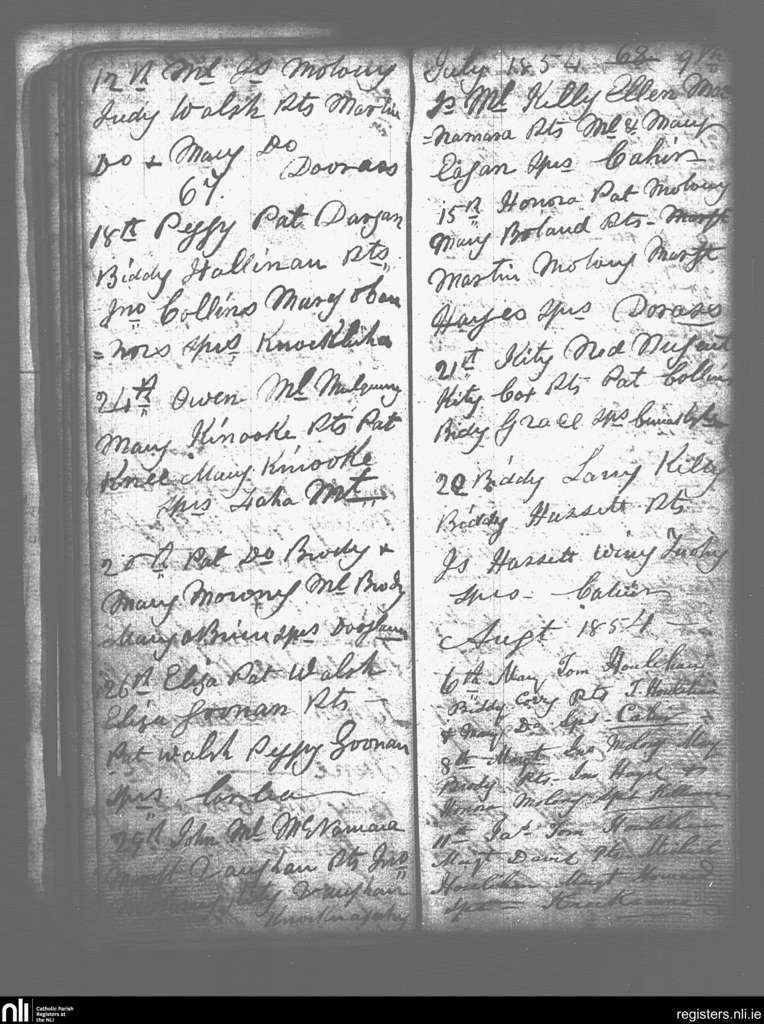 12th Ml Js Molony
Judy Walsh Pts Martin
Do & Mary Do
Doorass
67
18th Peggy Pat Dargan
Biddy Hallinan Pts
Jno Collins Mary oCon
=nors sprs
24th Owen Ml
Mary Kinooke Pts Pat
Mary Kinooke
sprs Laha Mt
Pat Do Brody &
Mary Morony Ml Brody
Mary oBrien sprs
26th Eliza Pat Walsh
Eliza Goonan Pts
Pat Walsh Peggy Goonan
sprs
29th John Ml McNamara
Margt Vaughan Pts Jno
Kity Vaughan
July 1854 68 9th
Js Ml Kelly Ellen Mac
=namara Pts Ml & Mary
Eagan sprs Cahir
15th Honora Pat Molony
Mary Boland Pts Margt
Martin Molony Margt
Hayes sprs Dorass
21st Kity Ned Nugent
Kity Cox Pts Pat Collins
Bidy Grace sprs
Biddy Larry Kelly
Biddy Hassett Pts
Js Hassett Winy
sprs Caher
Augt 1854
6th Mary Tom Houlehan
Biddy Pts T. Houlehan
& Mary Do Sprs Caher
8th Margt Jno Molony Mary
Brody Pts Jno Hayes &
Honora Molony sprs
11th Tom Houlehan
Margt David Pts Michl
Houlehan Margt
sprs
nli
Catholic Parish
Registers at
the NLI
registers.nli.ie